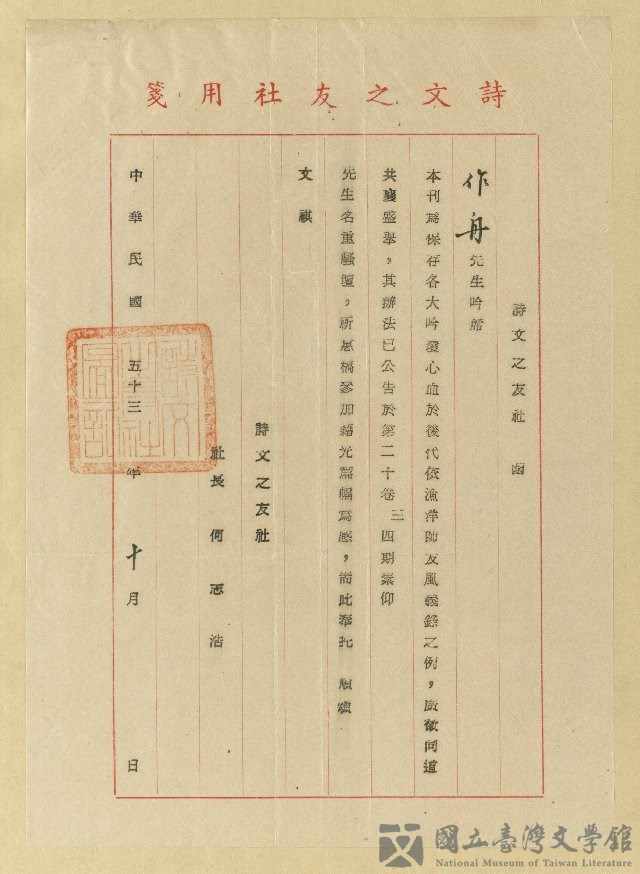 詩文之友社用箋
詩文之友社 函
作舟先生吟席
本刊為保存各大吟壇心血於後代依漁萍師友風義錄之例，廣徵同道
共襄盛舉，其辦法已公告於第二十卷三四期素仰
先生名重騷壇，祈惠稿參加藉光篇幅為感，耑此奉托 順頌
文祺
詩文之友社
社長 何志浩
中華民國五十三年十月 日
國立臺灣文學館
National Museum of Taiwan Literature